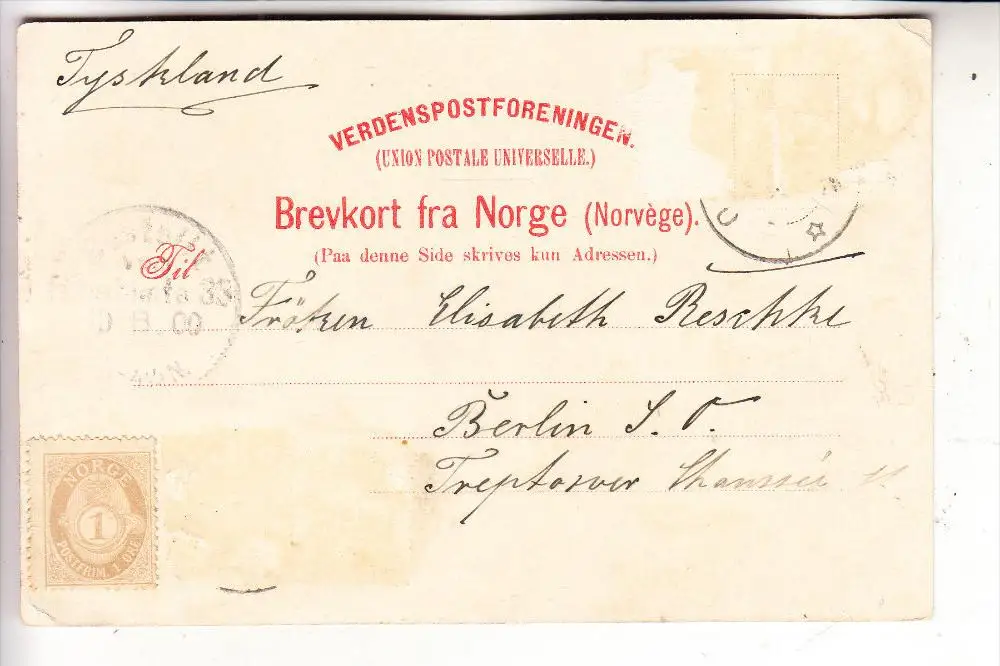 Tyskland
VERDENSPOSTFORENINGEN.
(UNION POSTALE UNIVERSELLE.)
Brevkort fra Norge (Norvège).
(Paa denne Side skrives kun Adressen.)
Til
33
00
Fröken Elisabeth Reschke
Berlin S. O.
Treptower Chaussée
NORGE
1
POSTFRIM. 1 ØRE